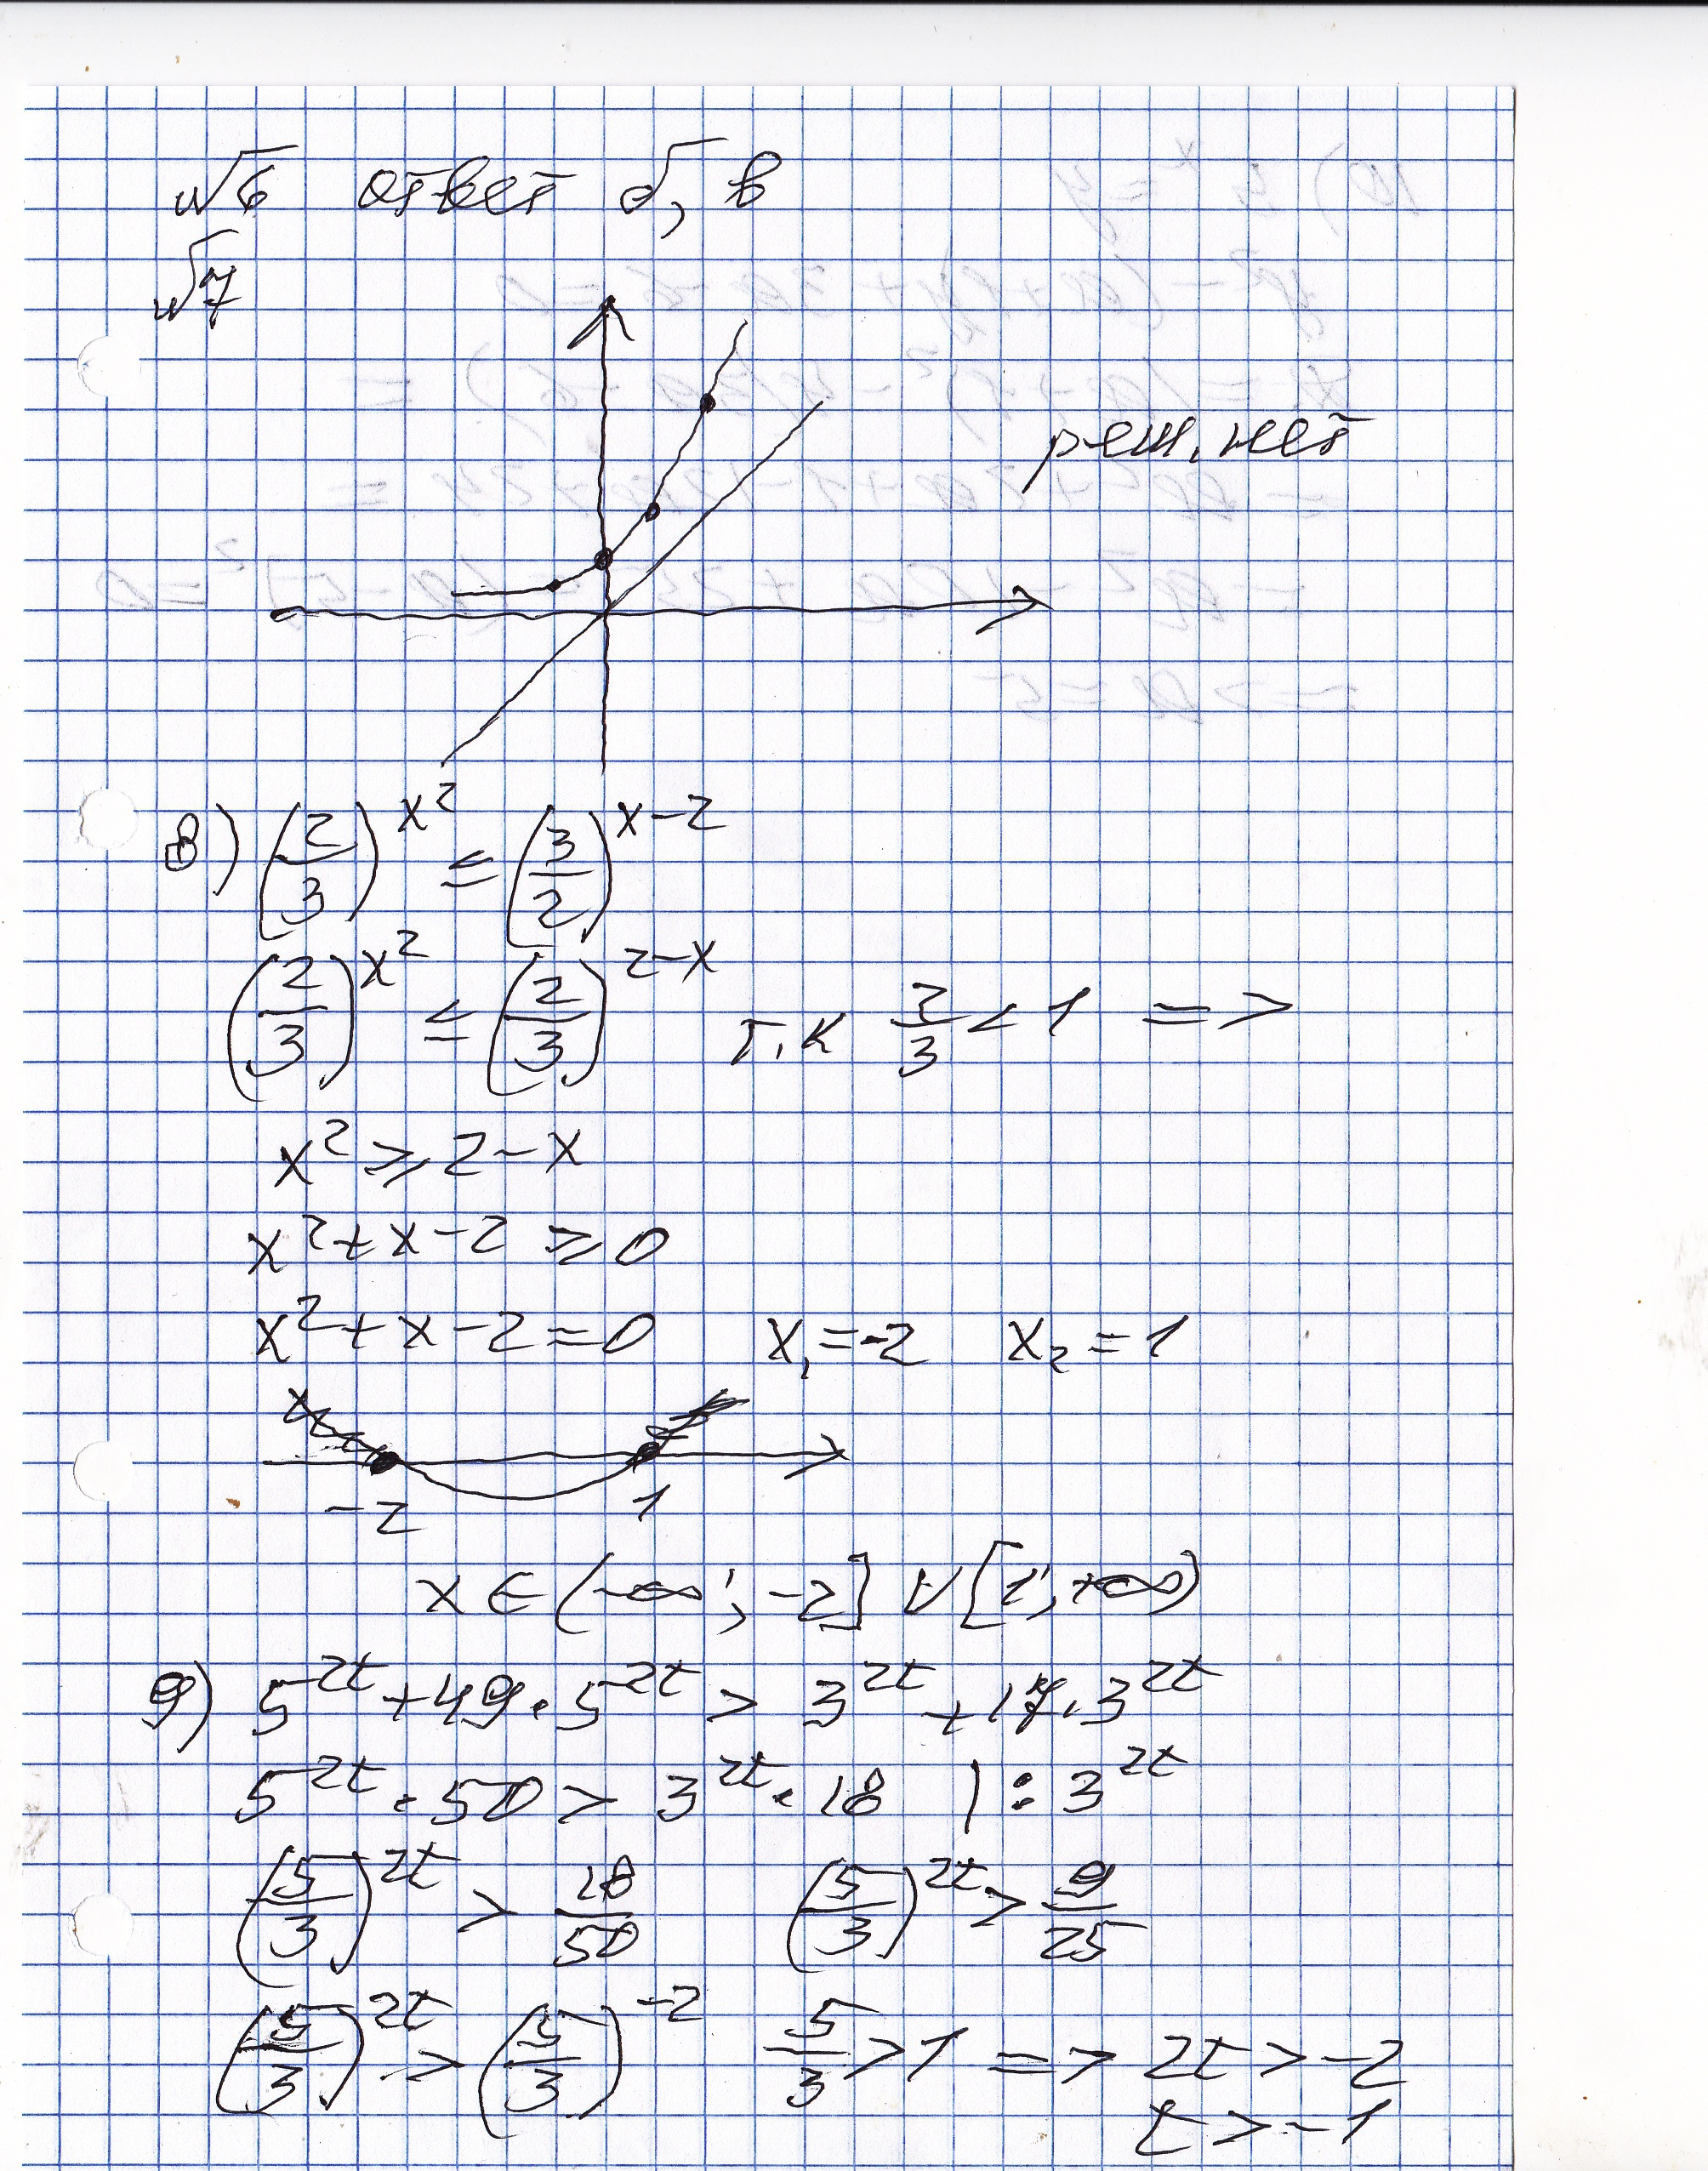 №6 ответ б, в
№7
реш. нет
8) (2/3)^(x²) ≤ (3/2)^(x-2)
(2/3)^(x²) ≤ (2/3)^(2-x) т.к 2/3 < 1 =>
x² ≥ 2-x
x²+x-2 ≥ 0
x²+x-2=0 x₁=-2 x₂=1
-2 1
x ∈ (-∞; -2] ∪ [1; +∞)
9) 5^(2t) + 49·5^(2t) > 3^(2t) + 17·3^(2t)
5^(2t)·50 > 3^(2t)·18 | : 3^(2t)
(5/3)^(2t) > 18/50 (5/3)^(2t) > 9/25
(5/3)^(2t) > (5/3)^(-2) 5/3 > 1 => 2t > -2
t > -1